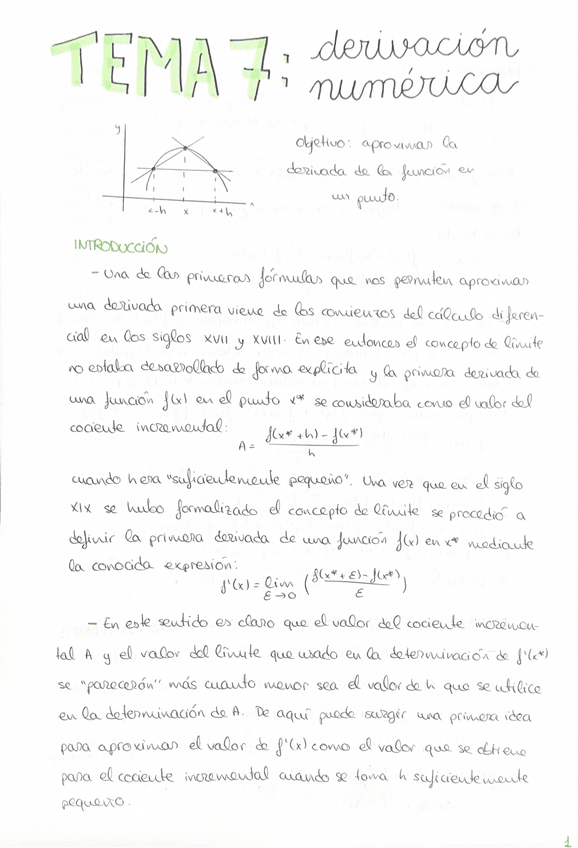 TEMA 7: derivación
numérica
y
x-h x x+h x
Objetivo: aproximar la
derivada de la función en
un punto.
INTRODUCCIÓN
- Una de las primeras fórmulas que nos permiten aproximar
una derivada primera viene de los comienzos del cálculo diferen-
cial en los siglos XVII y XVIII. En ese entonces el concepto de límite
no estaba desarrollado de forma explícita y la primera derivada de
una función f(x) en el punto x* se consideraba como el valor del
cociente incremental:
A = f(x*+h)-f(x*) / h
cuando h era "suficientemente pequeño". Una vez que en el siglo
XIX se hubo formalizado el concepto de límite se procedió a
definir la primera derivada de una función f(x) en x* mediante
la conocida expresión:
f'(x) = lim ε→0 (f(x*+ε)-f(x*) / ε)
- En este sentido es claro que el valor del cociente incremen-
tal A y el valor del límite que usado en la determinación de f'(x*)
se "parecerán" más cuanto menor sea el valor de h que se utilice
en la determinación de A. De aquí puede surgir una primera idea
para aproximar el valor de f'(x) como el valor que se obtiene
para el cociente incremental cuando se toma h suficientemente
pequeño.
1